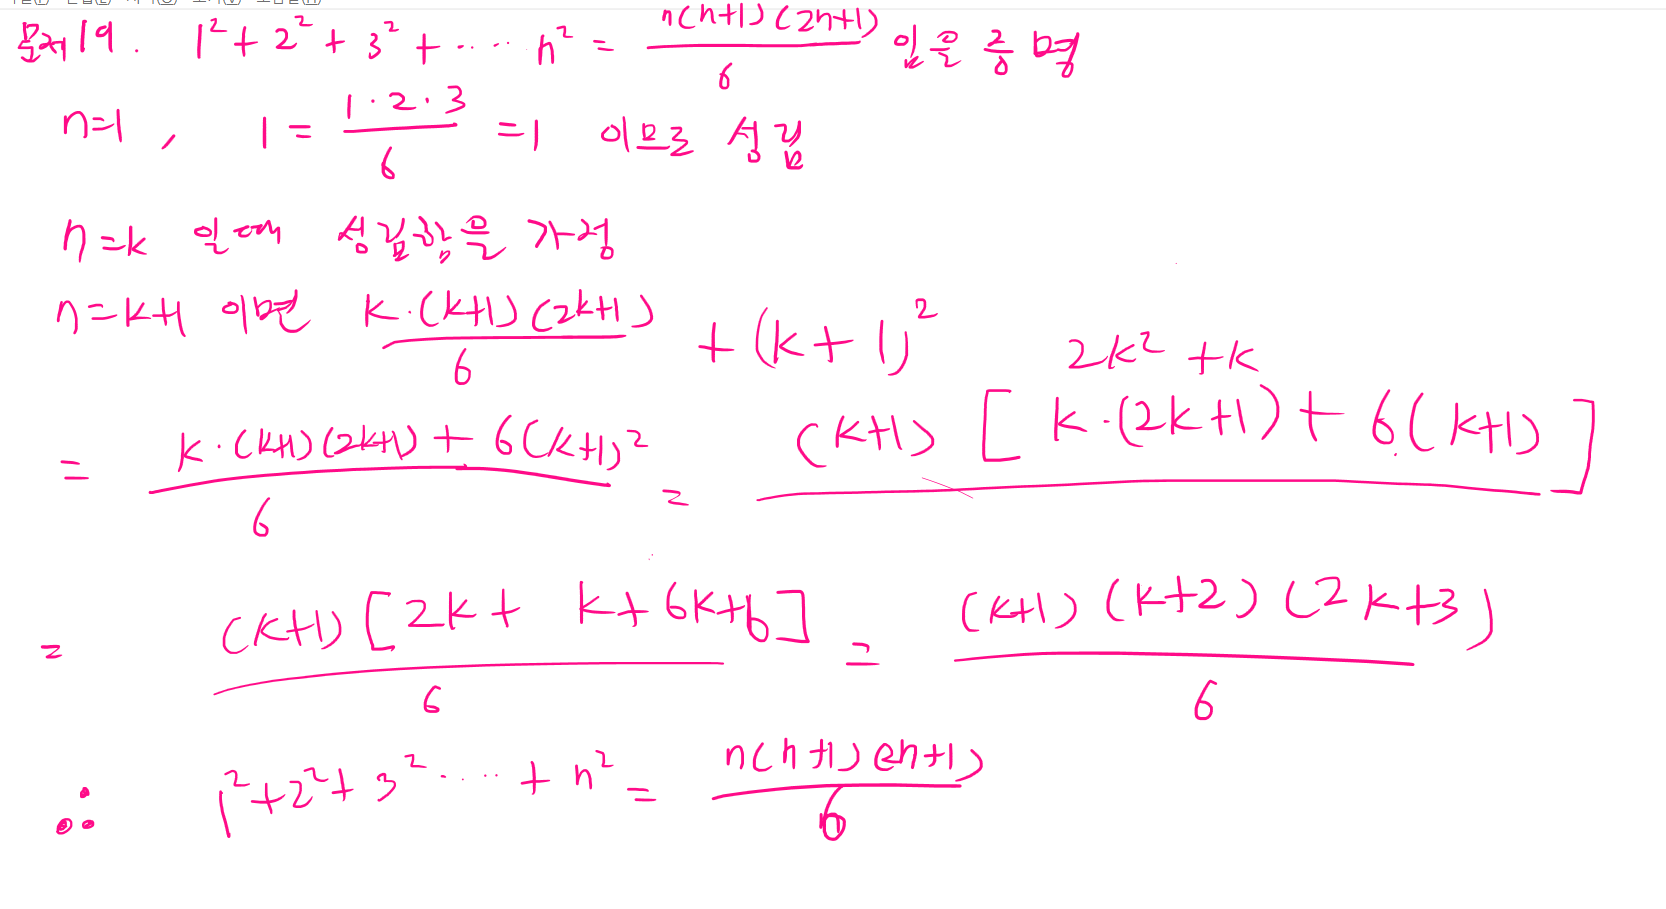 문제19. 1² + 2² + 3² + ‥‥ n² = n(n+1)(2n+1)/6 임을 증명
n=1 , 1 = 1·2·3/6 = 1 이므로 성립
n=k 일때 성립함을 가정
n=k+1 이면 k·(k+1)(2k+1)/6 + (k+1)²
2k² + k
= k·(k+1)(2k+1) + 6(k+1)²/6 = (k+1)[k·(2k+1) + 6(k+1)]
= (k+1)[2k + k + 6k + 6]/6 = (k+1)(k+2)(2k+3)/6
∴ 1² + 2² + 3² ‥‥ + n² = n(n+1)(2n+1)/6